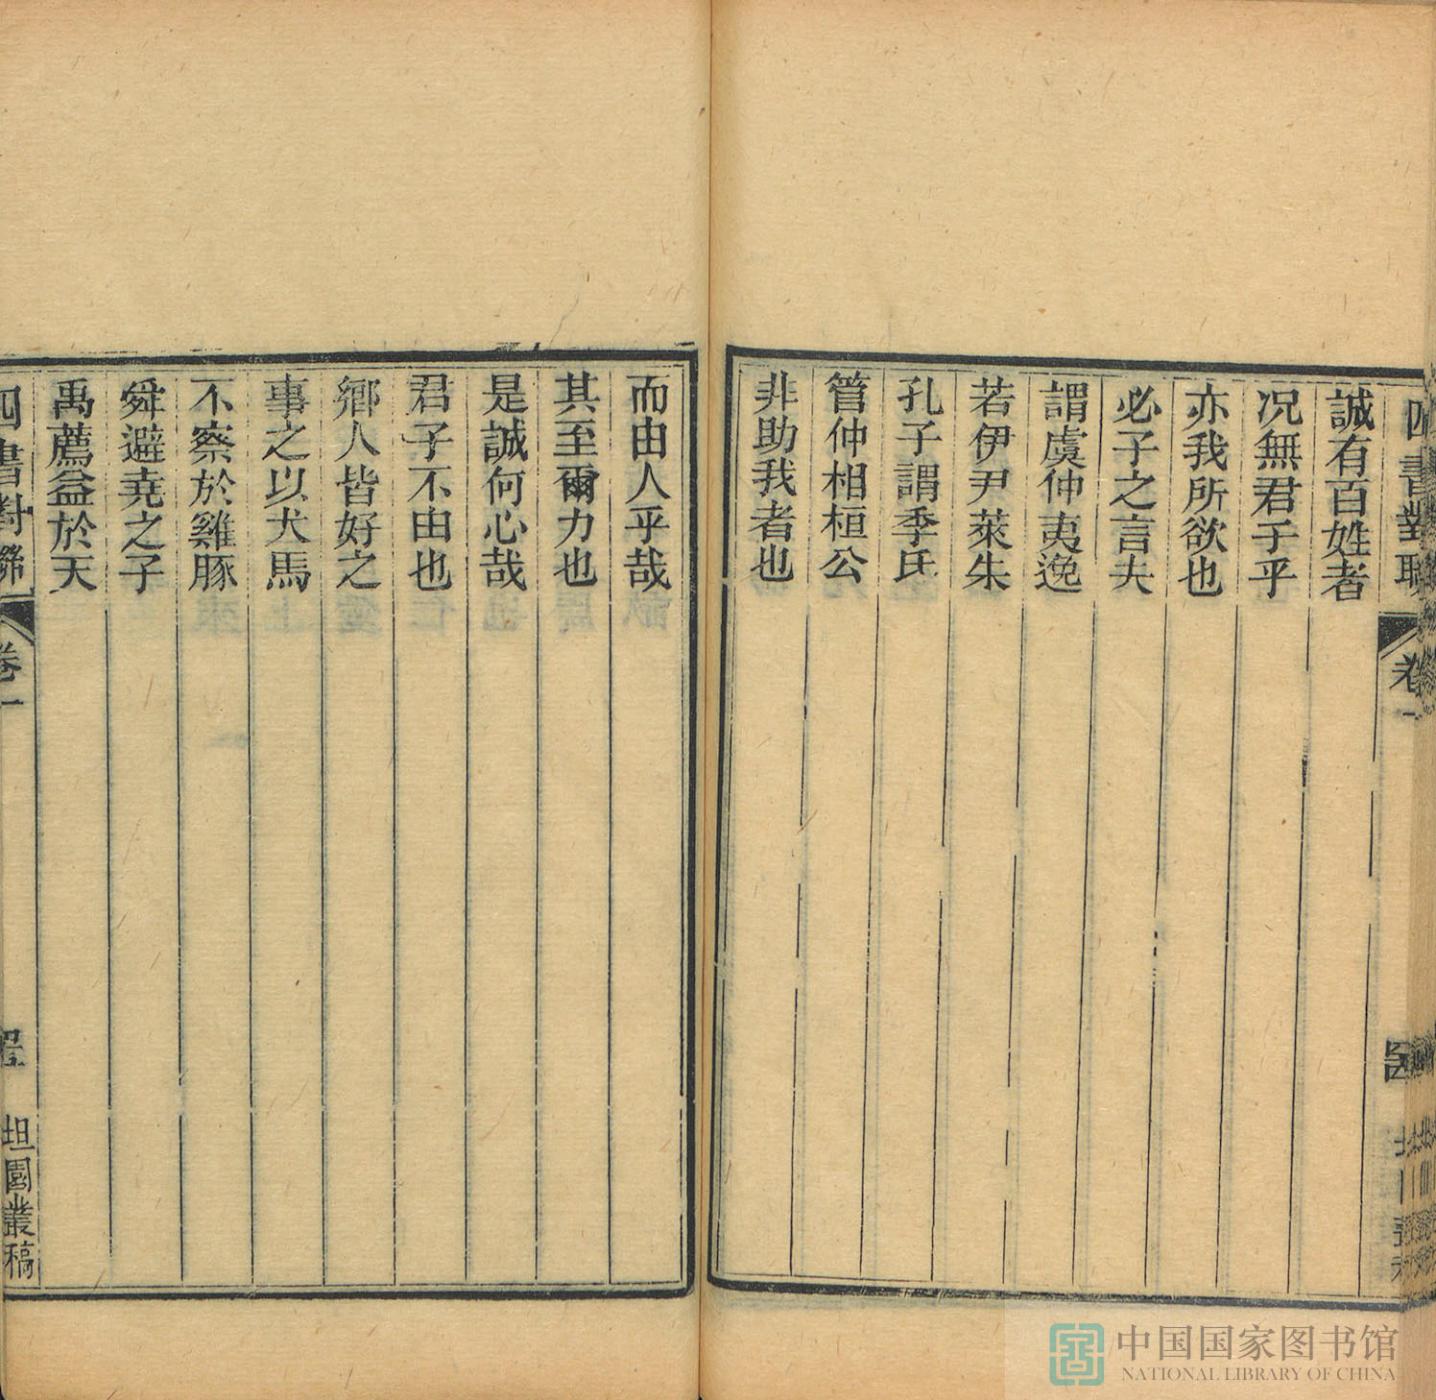 四書對聯 卷一
誠有百姓者
况無君子乎
亦我所欲也
必子之言夫
謂虞仲夷逸
若伊尹萊朱
孔子謂季氏
管仲相桓公
非助我者也
而由人乎哉
其至爾力也
是誠何心哉
君子不由也
鄉人皆好之
事之以犬馬
不察於雞豚
舜避堯之子
禹薦益於天
四書對聯 卷一 坦園叢稿
中国国家图书馆
NATIONAL LIBRARY OF CHINA